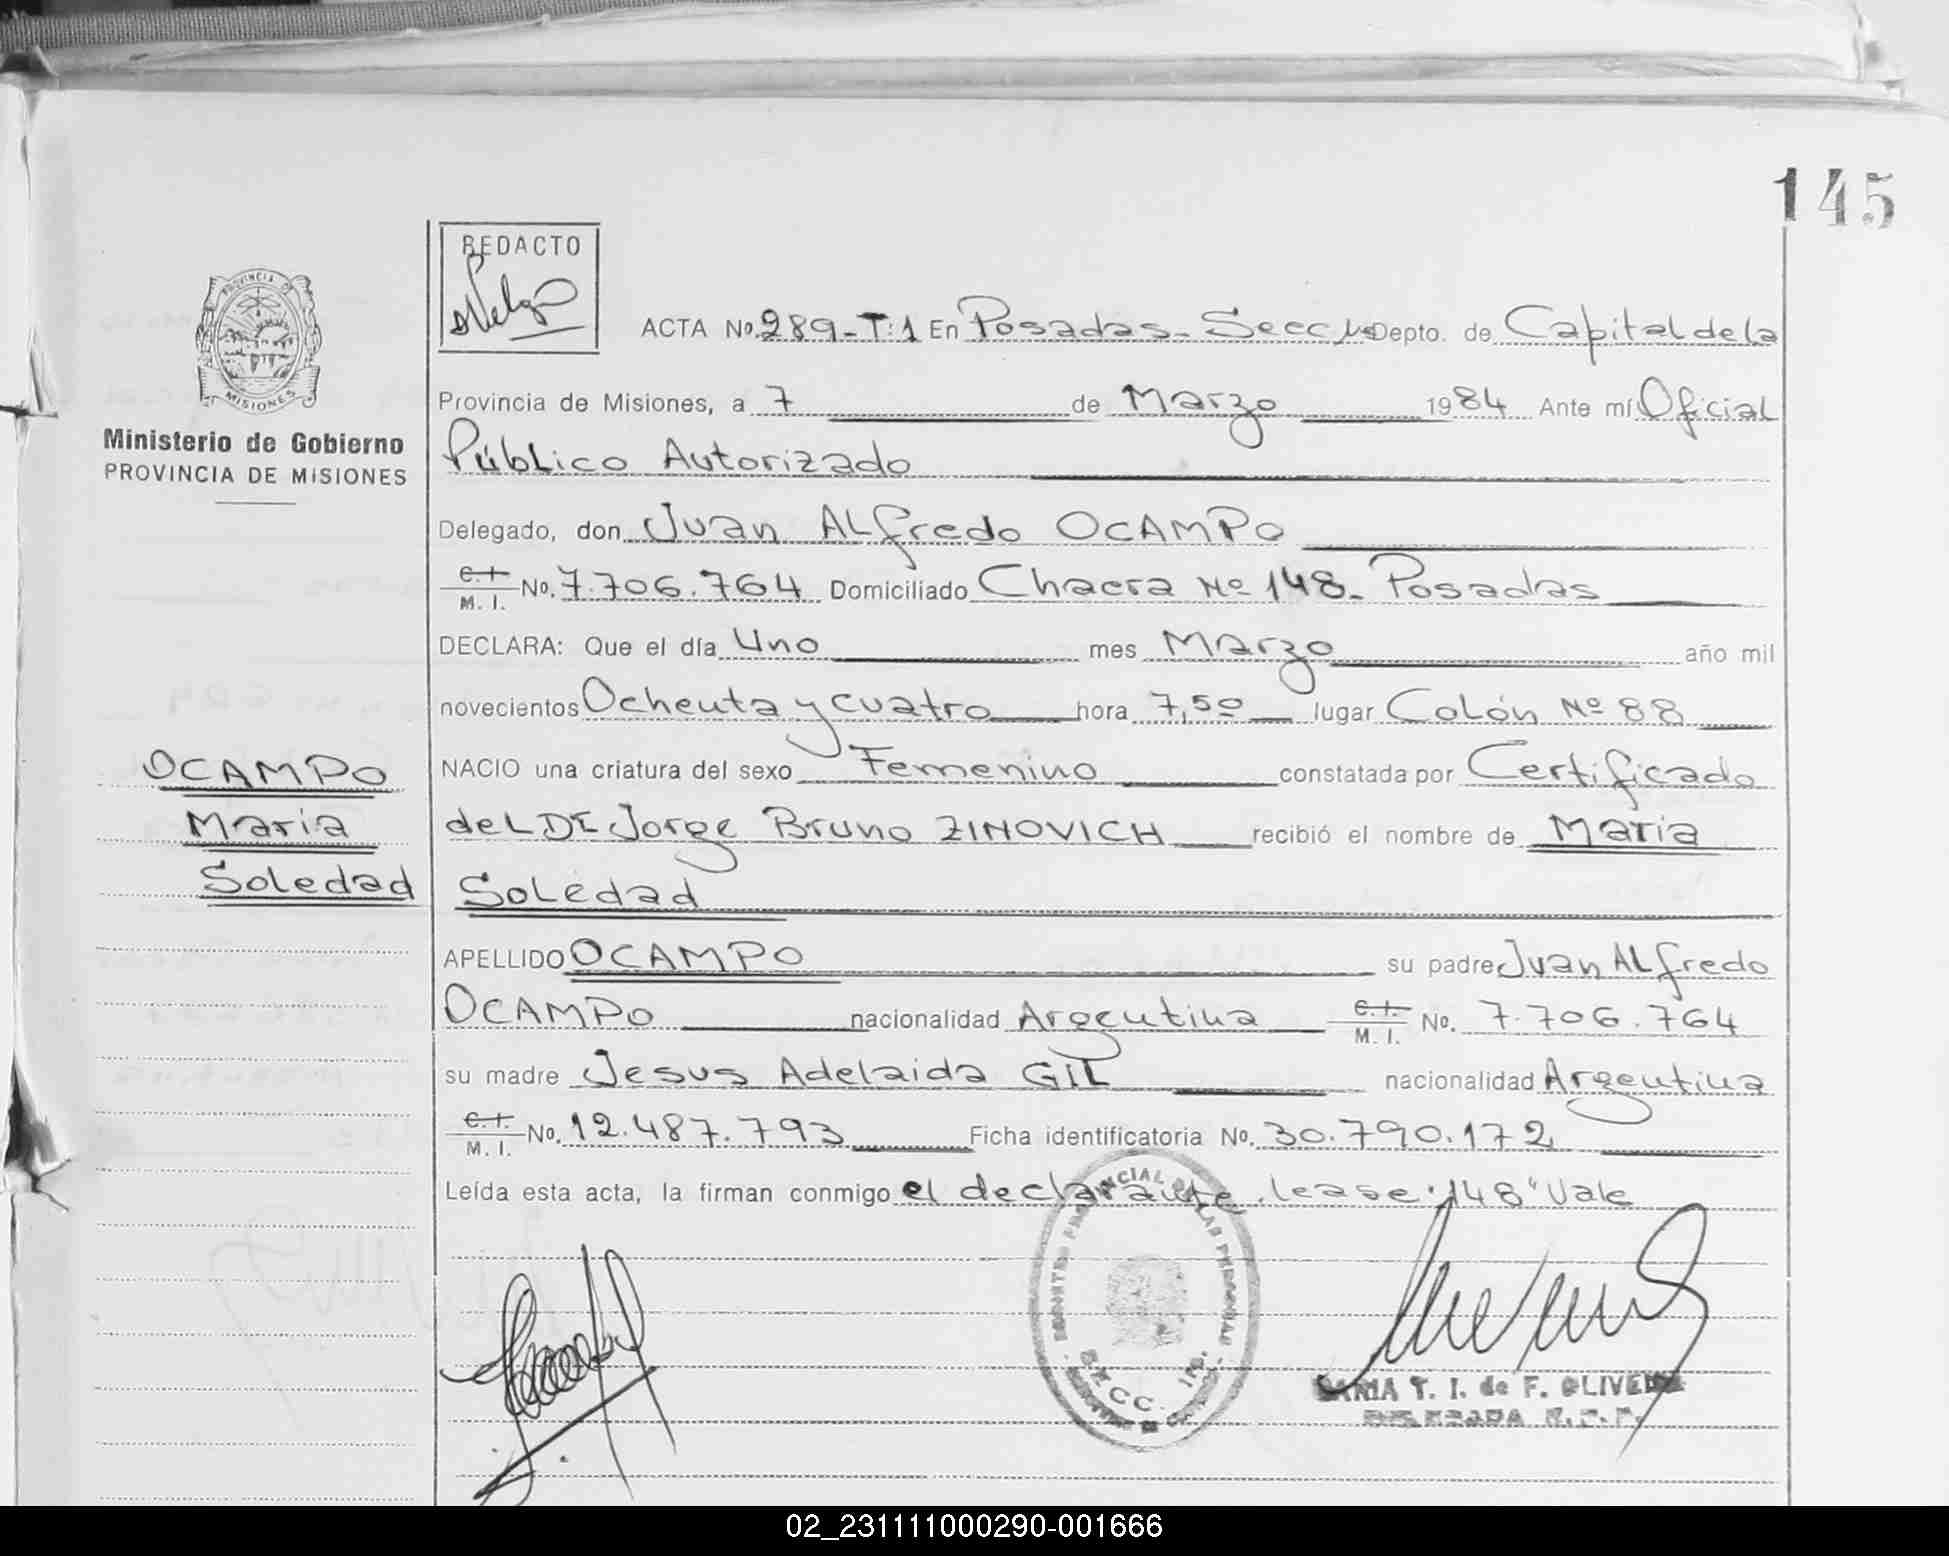 145
REDACTO
ACTA No. 289-T:1 En Posadas- Secc Depto. de Capital de la
PROVINCIA DE
MISIONES
Provincia de Misiones, a 7 de Marzo 1984 Ante mí Oficial
Ministerio de Gobierno
PROVINCIA DE MISIONES
Público Autorizado
Delegado, don Juan ALfredo OCAMPO
C.I. M. I. No. 7.706.764 Domiciliado Chacra Nº 148- Posadas
DECLARA: Que el día Uno mes Marzo año mil
novecientos Ochenta y cuatro hora 7,50 lugar Colón Nº 88
NACIO una criatura del sexo Femenino constatada por Certificado
OCAMPO
Maria
Soledad
deL Dr Jorge Bruno ZINOVICH recibió el nombre de Maria
Soledad
APELLIDO OCAMPO su padre Juan ALfredo
OCAMPO nacionalidad Argentina C.I. M. I. No. 7.706.764
su madre Jesus Adelaida GIL nacionalidad Argentina
C.I. M. I. No. 12.487.793 Ficha identificatoria No. 30.790.172
Leída esta acta, la firman conmigo el declarante. lease "148" Vale
T. I. de F. OLIVEIRA
02_231111000290-001666